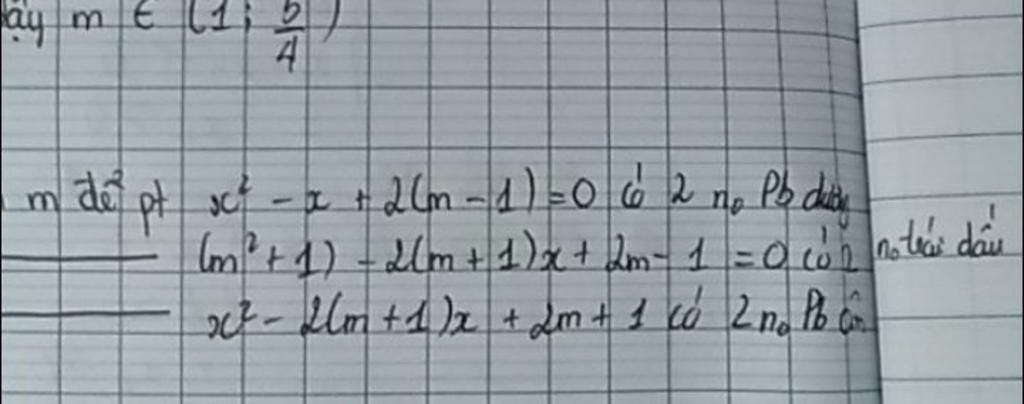 ậy m ∈ (1; 5/4)
m để pt x² - x + 2(m - 1) = 0 có 2 no Pb dương
(m² + 1) - 2(m + 1)x + 2m - 1 = 0 có 2 no trái dấu
x² - 2(m + 1)x + 2m + 1 có 2 no Pb âm